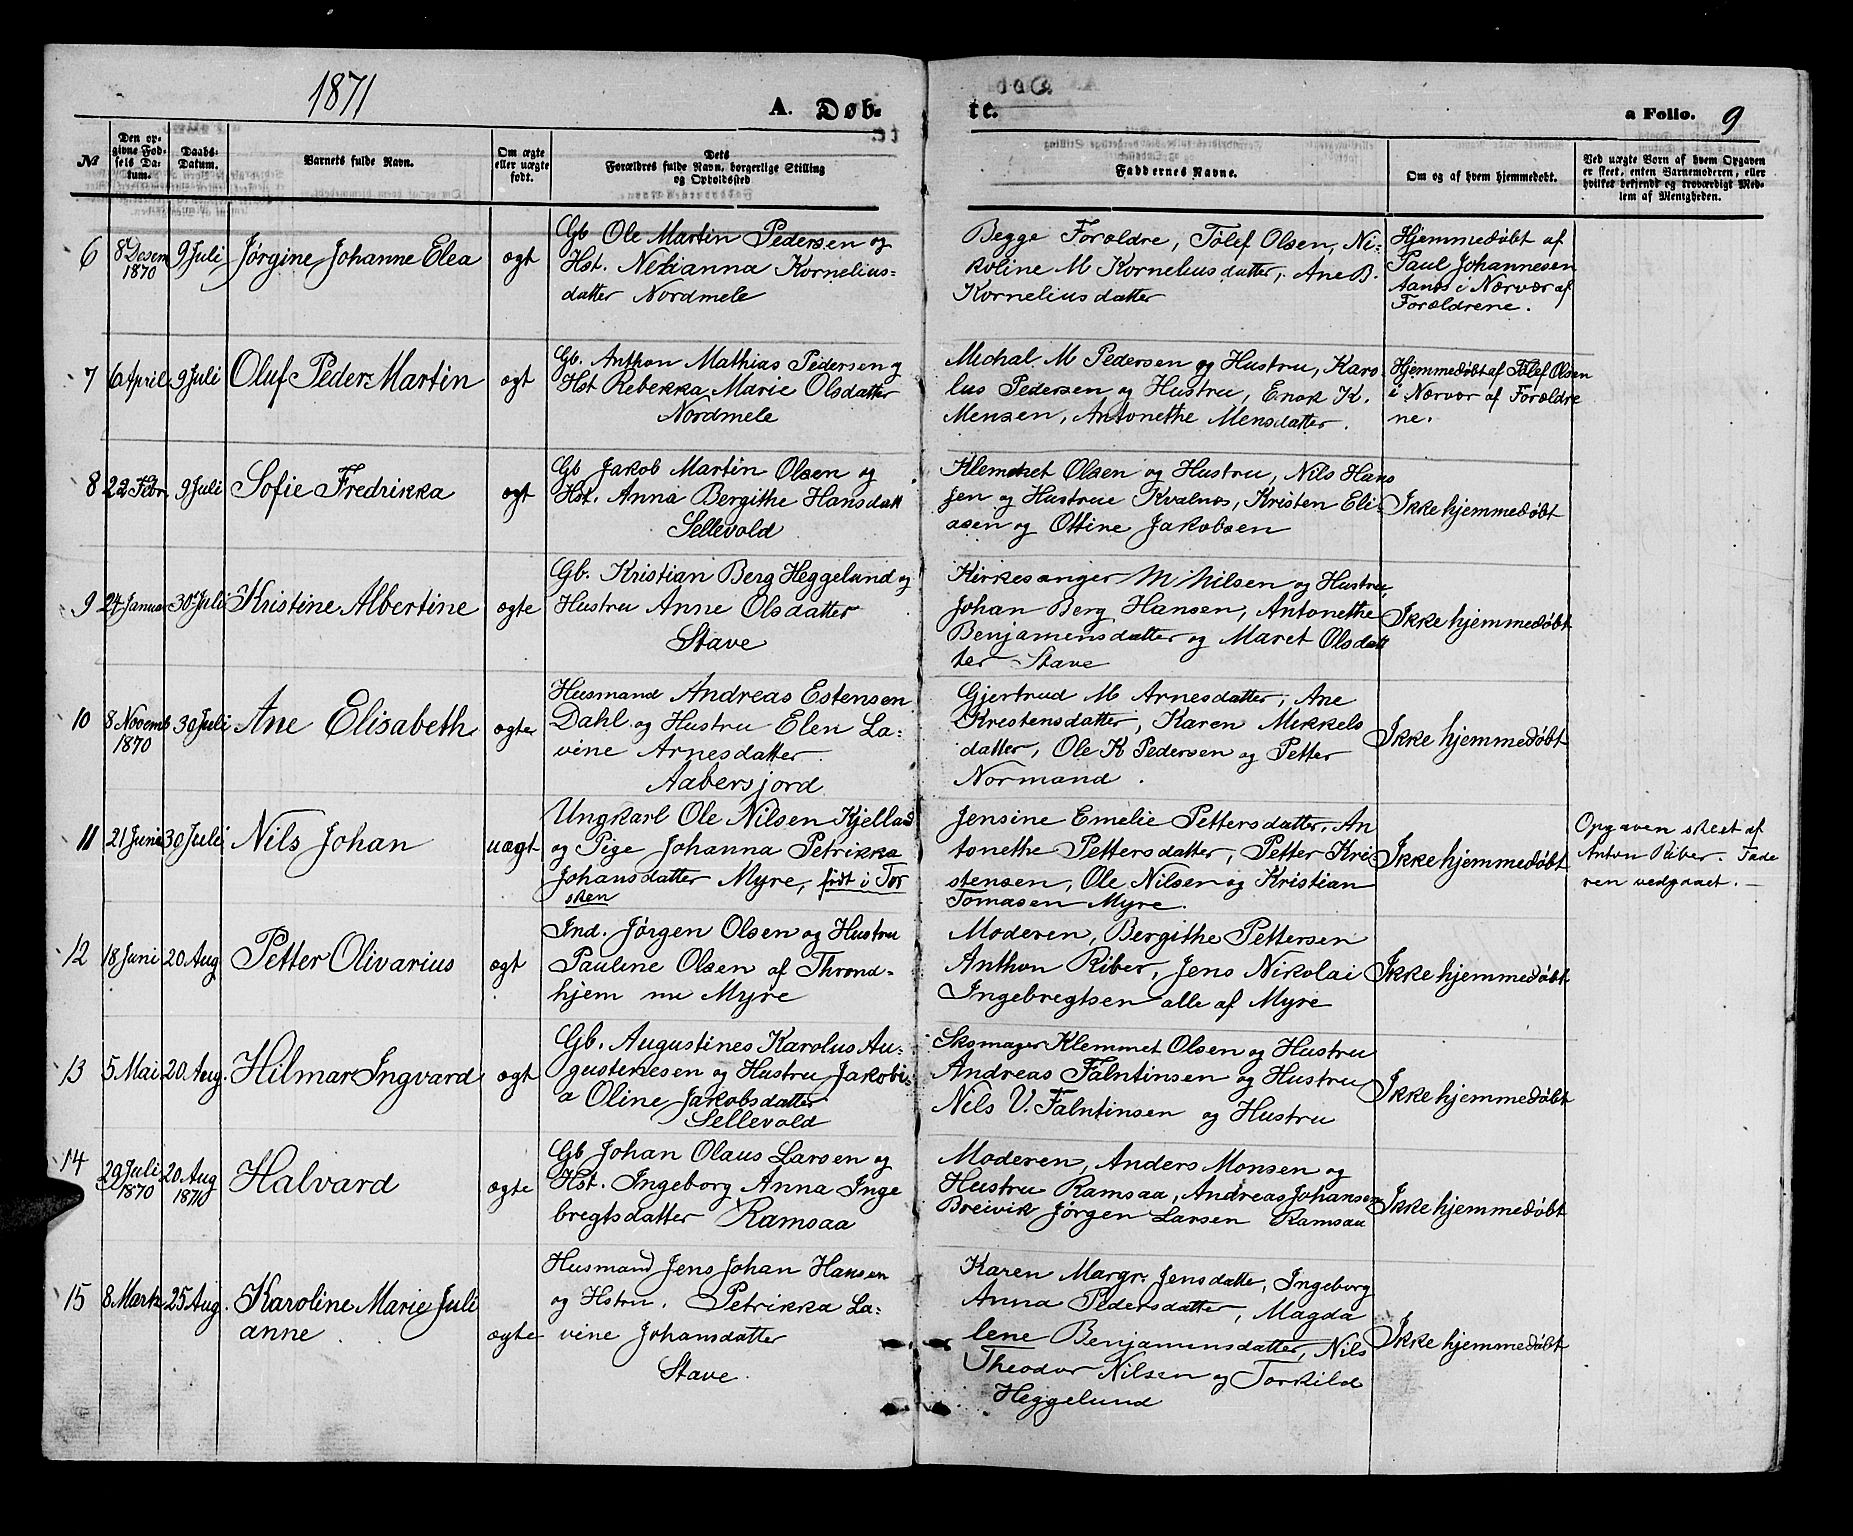 1871
A. Døb-
te.
a Folio. 9
№
Den opgivne Fødsels Datum.
Daabs-Datum.
Barnets fulde Navn.
Om ægte eller uægte født.
Dets Forældres fulde Navn, borgerlige Stilling og Opholdssted
Faddernes Navne.
Om og af hvem hjemmedøbt.
Ved uægte Børn af hvem Opgaven er skeet, enten Barnemoderen, eller hvilket bekjendt og troværdigt Medlem af Menigheden.
6
8 Desem
1870
9 Juli
Jørgine Johanne Elea
ægt
Gb. Ole Martin Pedersen og
Hst. Nekianna Kornelius=
datter Nordmele
Begge Forældre, Tølef Olsen, Ni-
koline M Korneliusdatter, Ane B.
Korneliusdatter
Hjemmedøbt af
Paul Johannesen
Aanes i Nærvær af
Forældrene.
7
6 April
9 Juli
Oluf Peder Martin
ægt
Gb. Anthon Mathias Pedersen og
Hst Rebekka Marie Olsdatter
Nordmele
Michal M Pedersen og Hustru, Karo
lus Pedersen og Hustru, Enok K.
Mensen, Antonethe Mensdatter.
Hjemmedøbt af Tølef Olsen
i Nærvær af Forældre
ne.
8
22 Febr
9 Juli
Sofie Fredrikka
ægt
Gb Jakob Martin Olsen og
Hst. Anna Bergithe Hansdatt
Sellevold
Klemmet Olsen og Hustru, Nils Hans
sen og Hustrue Kvalnes, Kristen Eli-
asen og Ottine Jakobsen
Ikke hjemmedøbt
9
24 Januar
30 Juli
Kristine Albertine
ægte
Gb. Kristian Berg Heggelund og
Hustru Anne Olsdatter
Stave
Kirkesanger M Nilsen og Hustru,
Johan Berg Hansen, Antonethe
Benjamensdatter og Maret Olsdatt
ter Stave
Ikke hjemmedøbt
10
8 Novemb
1870
30 Juli
Ane Elisabeth
ægte
Husmand Andreas Estensen
Dahl og Hustru Elen La=
vine Arnesdatter.
Aabersjord
Gjertrud M Arnesdatter, Ane
Krestensdatter, Karen Mekkels
datter, Ole K Pedersen og Petter
Normand.
Ikke hjemmedøbt
11
21 Juni
30 Juli
Nils Johan
uægt
Ungkarl Ole Nilsen Kjellad
og Pige Johanna Petrikka
Johansdatter Myre, født i Tor
sken
Jensine Emelie Pettersdatter, An
tonethe Pettersdatter, Petter Kri-
stensen, Ole Nilsen og Kristian
Tomasen Myre.
Ikke hjemmedøbt
Opgaven skeet af
Anton Riber. Fade
ren vedgaaet. —
12
18 Juni
20 Aug
Petter Olivarius
ægt
Ind. Jørgen Olsen og Hustru
Pauline Olsen af Thrond=
hjem nu Myre
Moderen, Bergithe Pettersen
Anthon Riber, Jens Nikolai
Ingebregtsen alle af Myre
Ikke hjemmedøbt
13
5 Mai
20 Aug.
Hilmar Ingvard
ægt
Gb. Augustines Karolus Au-
gustenesen og Hustru Jakobi=
a Oline Jakobsdatter
Sellevold
Skomager Klemmet Olsen og Hustru
Andreas Falntinsen og Hustru
Nels V. Falntinsen og Hustru
Ikke hjemmedøbt
14
29 Juli
1870
20 Aug
1871
Halvard
ægte
Gb Johan Olaus Larsen og
Hst. Ingeborg Anna Inge
bregtsdatter Ramsaa
Moderen, Anders Monsen og
Hustru Ramsaa, Andreas Johansen
Breivik Jørgen Larsen Ramsaa
Ikke hjemmedøbt
15
8 Marts
25 Aug.
Karoline Marie Juli
anne
ægte
Husmand Jens Johan Hansen
og Hstru. Petrikka La=
vine Johansdatter
Stave
Karen Margr. Jensdatter, Ingeborg
Anna Pedersdatter, Magda
lene Benjamensdatter, Nils
Theodor Nilsen og Torkild
Heggelund
Ikke hjemmedøbt